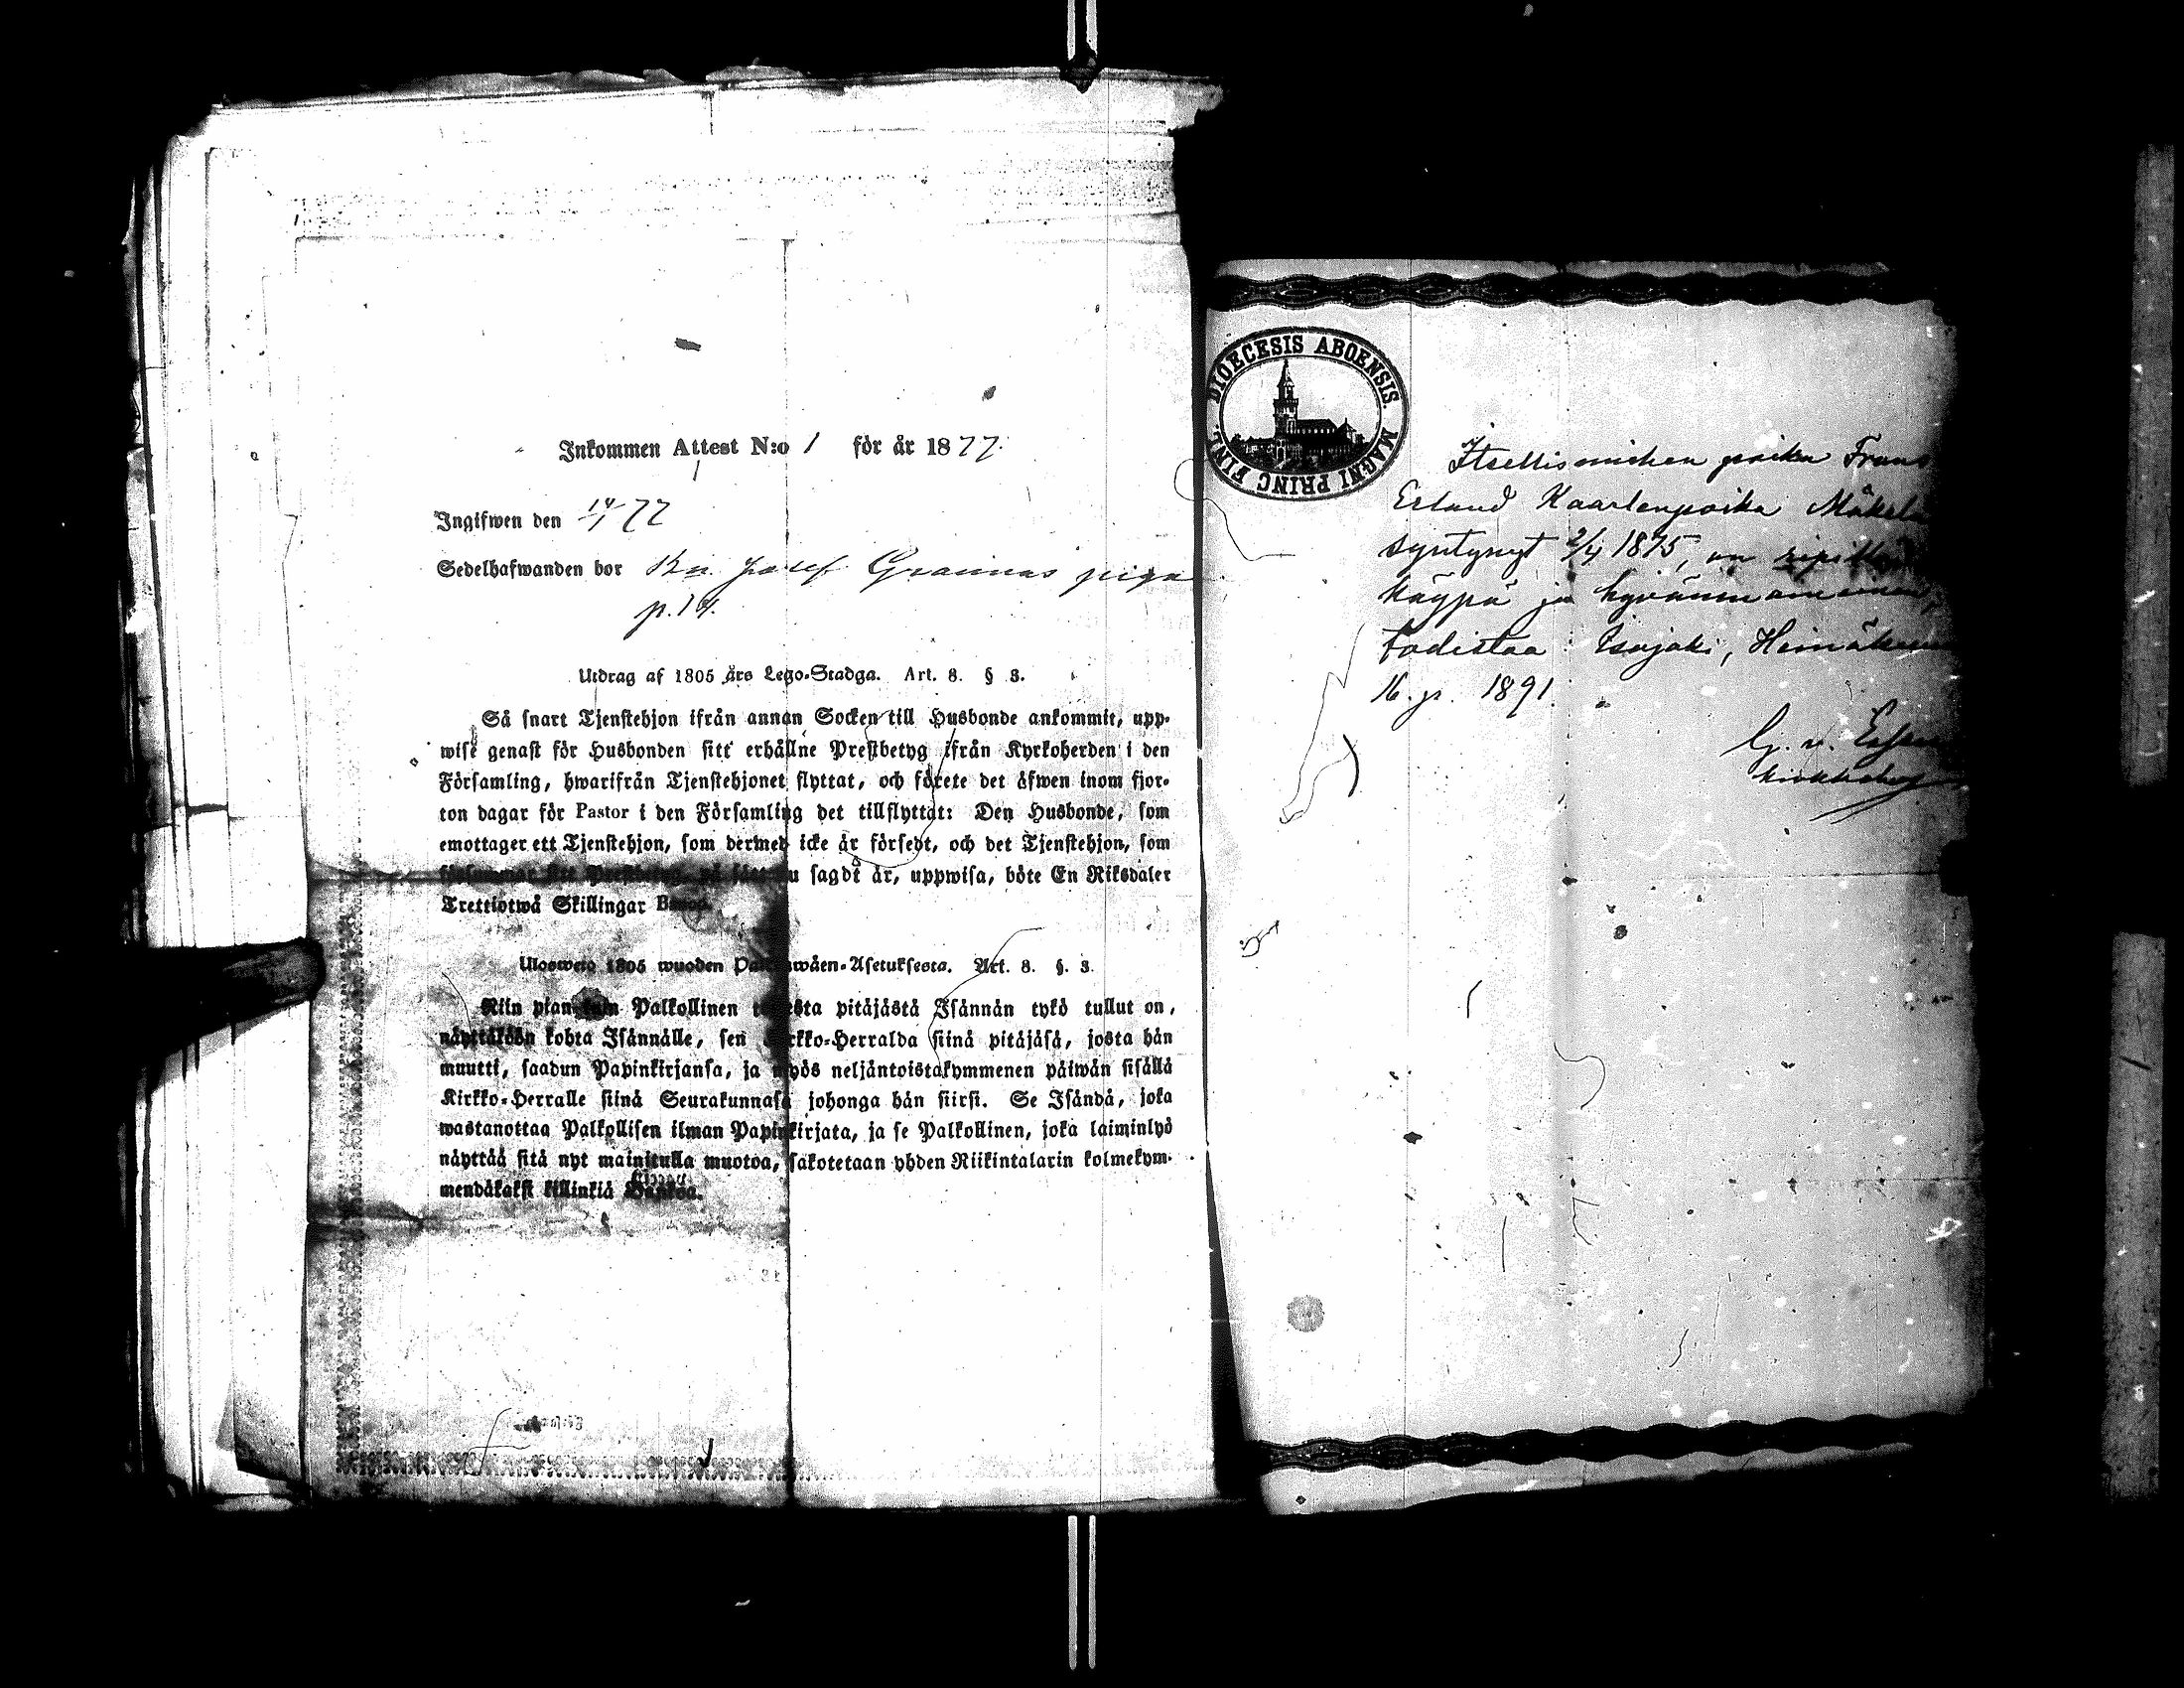 Inkommen Attest N:o 1 för år 1877.
Ingifwen den 14/1 77
Sedelhafwanden bor Bn. Josef Grannas piga
p. 14.
Utdrag af 1805 års Lego-Stadga. Art. 8. § 3.
Så snart Tjenstehjon ifrån annan Socken till Husbonde ankommit, upp-
wise genast för Husbonden sitt erhållne Prestbetyg ifrån Kyrkoherden i den
Församling, hwarifrån Tjenstehjonet flyttat, och förete det äfwen inom fjor-
ton dagar för Pastor i den Församling det tillflyttat: Den Husbonde, som
emottager ett Tjenstehjon, som dermed icke är försedt, och det Tjenstehjon, som
sitt Prestbetyg, på sätt nu sagdt är, uppwisa, böte En Riksdaler
Trettiotwå Skillingar Banco.
Ulosweto 1805 wuoden Palkkawäen-Asetuksesta. Art. 8. §. 3.
Niin pian kuin Palkollinen toisesta pitäjästä Isännän tykö tullut on,
näyttäköön kohta Isännälle, sen Kirkko-Herralda siinä pitäjäsä, josta hän
muutti, saadun Papinkirjansa, ja myös neljäntoistakymmenen päiwän sisällä
Kirkko-Herralle siinä Seurakunnasa johonga hän siirsi. Se Isändä, joka
wastanottaa Palkollisen ilman Papinkirjata, ja se Palkollinen, joka laiminlyö
näyttää sitä nyt mainitulla muotoa, sakotetaan yhden Riikintalarin kolmekym-
mendäkaksi killinkiä Bankoa.
DIOECESIS ABOENSIS. MAGNI PRINC FINL.
Itsellismiehen poika Frans
Erland Kaarlenpoika Mäkelä
syntynyt 2/4 1875, on
käypä ja hyvänmaineinen,
todistaa Isojoki, Heinäkuun
16. p. 1891.
G. v. Essen
kirkkoherra